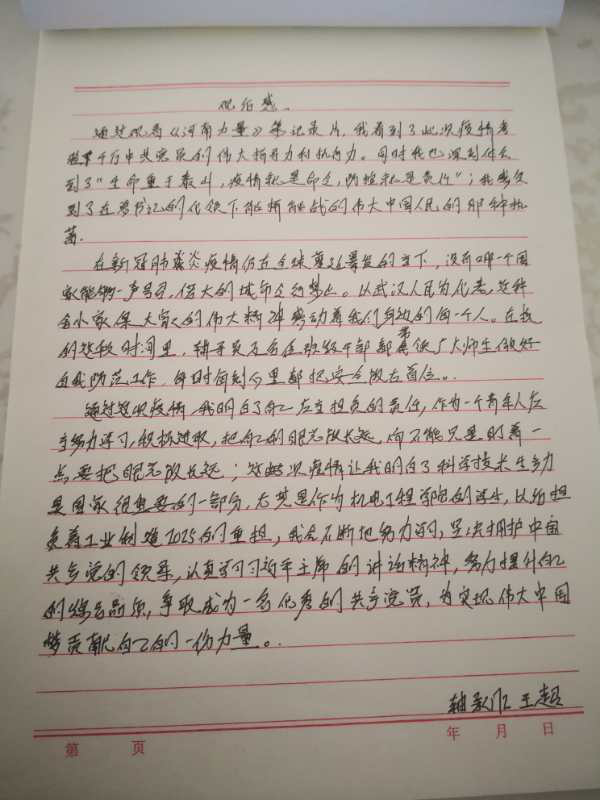 观后感。
通过观看《河南力量》第记录片，我看到了此次疫情考
千万中共党员的伟大领导力和执行力。同时我也深刻体会
到了"生命重于泰山，疫情就是命令，防控就是责任"；我感受
到了在总书记的代领下能拼能战的伟大中国人民的那种执
着。
在新冠肺炎疫情仍在全球蔓延暴发的当下，没有哪一个国
家能够一声号召，偌大的城市全部禁止。以武汉人民为代表，这种
舍小家保大家的伟大精神感动着我们身边的每一个人。在校
的这段时间里，辅导员及各位班级干部都带领广大师生做好
自我防范工作，每时每刻心里都把安全放在首位。
通过这次疫情，我明白了自己应当担负的责任，作为一个青年人应
当努力学习，积极进取，把自己的眼光放长远，而不能只是盯着一
点要把眼光放长远；这次疫情让我明白了科学技术生产力
是国家很重要的一部分，尤其是作为机电工程学院的学生，以后担
负着工业制造2025的重担，我应不断地努力学习，坚决拥护中国
共产党的领导，认真学习习近平主席的讲话精神，努力提升自己
的综合品质，争取成为一名优秀的共产党员，为实现伟大中国
梦贡献自己的一份力量。
王超
第 页 年 月 日